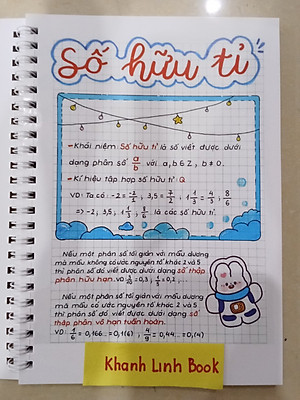 Số hữu tỉ
- Khái niệm: Số hữu tỉ là số viết được dưới
dạng phân số a/b với a, b ∈ Z, b ≠ 0.
- Kí hiệu tập hợp số hữu tỉ: Q.
VD: Ta có: -2 = -2/1 ; 3,5 = 7/2 ; 1 1/3 = 4/3 ; 8/6
⇒ -2; 3,5 ; 1 1/3 ; 8/6 là các số hữu tỉ.
Nếu một phân số tối giản với mẫu dương
mà mẫu không có ước nguyên tố khác 2 và 5
thì phân số đó viết được dưới dạng số thập
phân hữu hạn. VD: 3/10 = 0,3 ; 1/5 = 0,2 ,...
Nếu một phân số tối giản với mẫu dương
mà mẫu có ước nguyên tố khác 2 và 5
thì phân số đó viết được dưới dạng số
thập phân vô hạn tuần hoàn.
VD: 1/6 = 0,166... = 0,1(6) ; 4/9 = 0,44... = 0,(4)
Khanh Linh Book